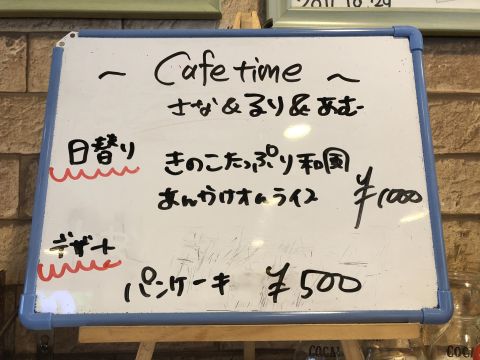 2011.10.29
~ Cafe time ~
さな&るり&あむ
日替り
きのこたっぷり和風
あんかけオムライス ¥1000
デザート
パンケーキ ¥500
COCA
COCA